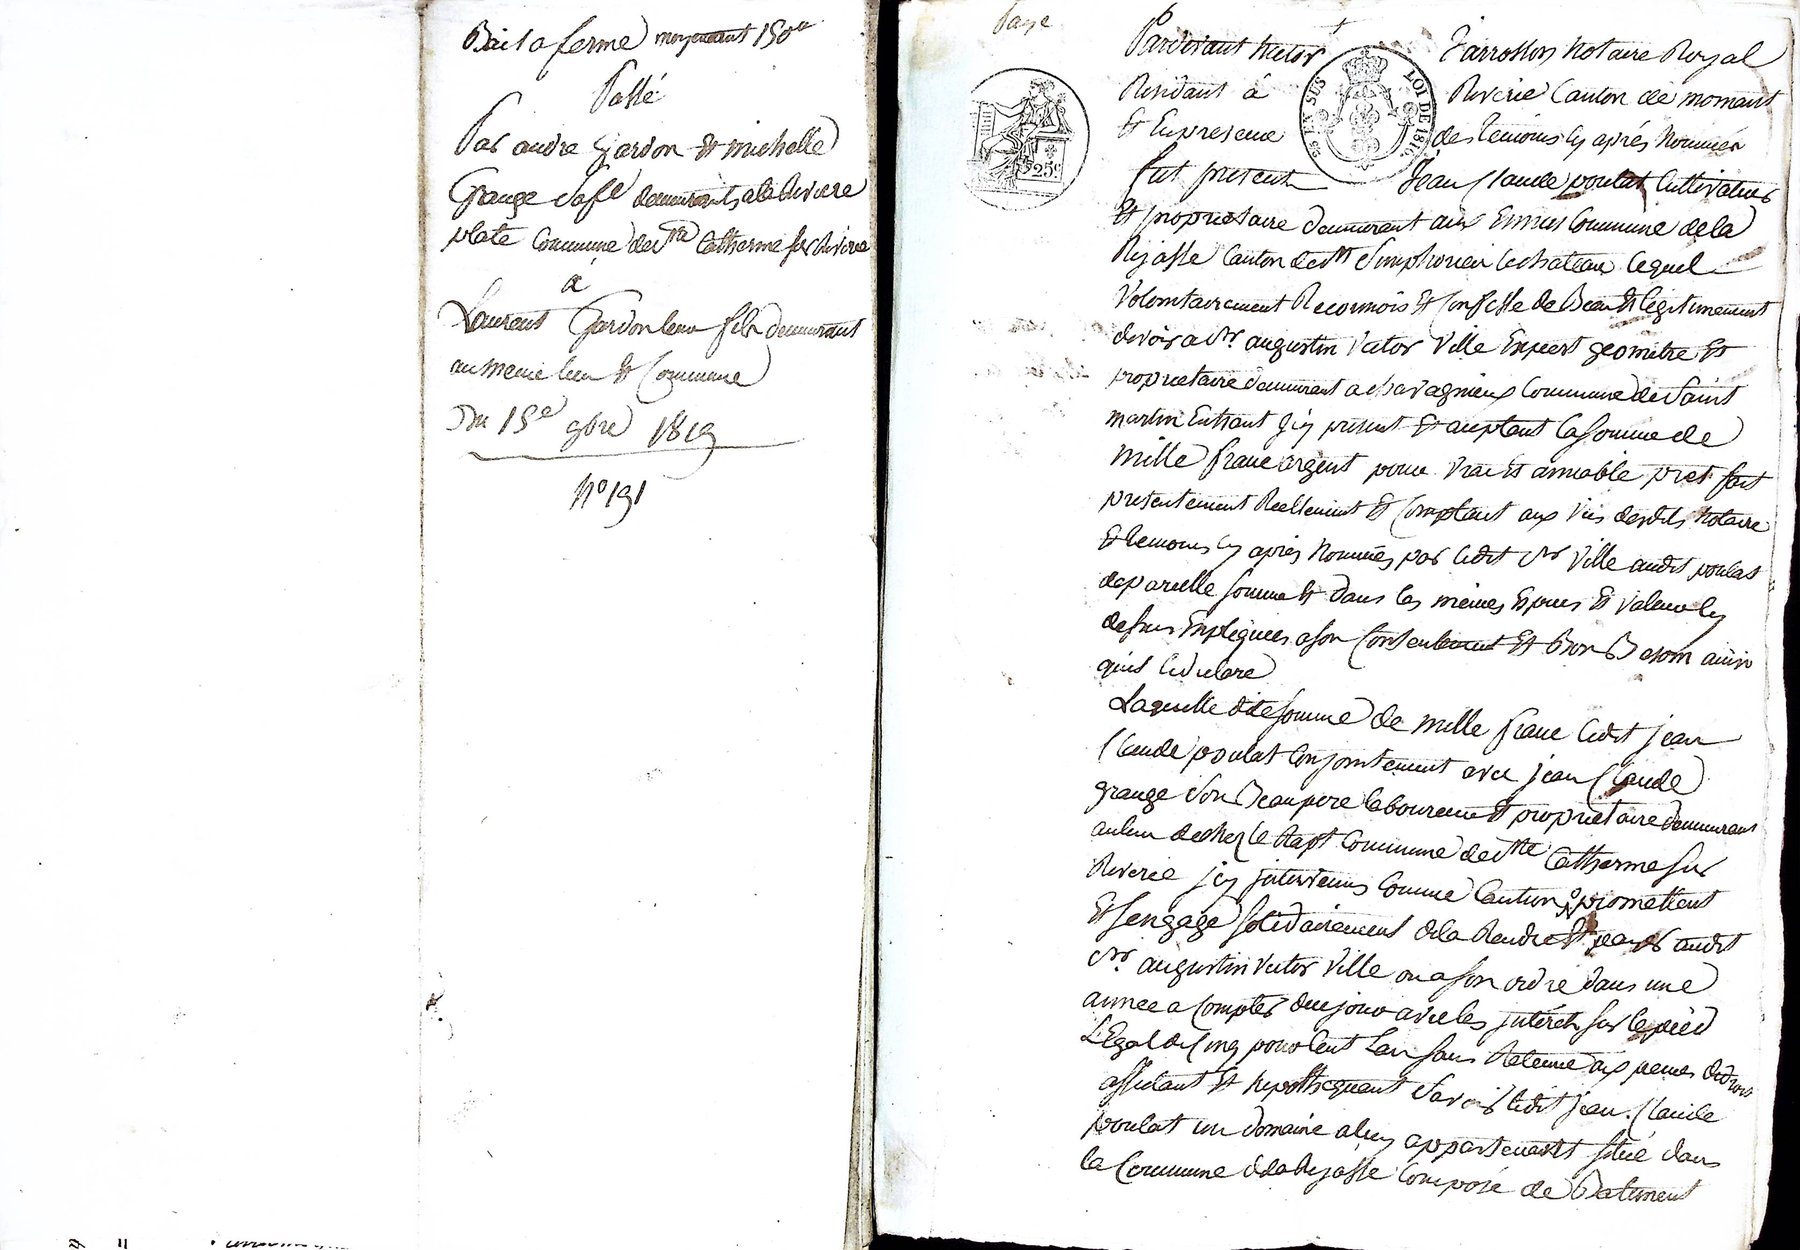 Bail a ferme moyennant 150 tt
Passé
Par andre Gardon Et michelle
Grange Sa fe demeurants a la Riviere
plate Commune de Ste Catherine sur Riverie
a
Laurent Gardon leur fils demeurant
au meme lieu Et Commune
Du 15e 9bre 1819
N° 191
Page
Pardevant Victor Jarrosson Notaire Royal
Residant á Riverie Canton de mornant
Et En presence des temoins cy aprés Nommés
fut present Jean Claude poulat Cultivateur
Et proprietaire demeurant aux Commune de la
Rajasse Canton de St Simphorien le chateau lequel
Volontairement Reconnois Et Confesse de Bien Et legitimement
devoir a Sr. augustin Victor Ville Expert geomètre Et
proprietaire demeurant a chavagnieux Commune de Saint
martin Jcy present Et aceptant la somme de
mille franc argent pour Vrai Et amiable pret fait
presentement Reellement Et Comptant aux Vus desdits Notaire
Et temoins cy aprés Nommés par ledit Sr Ville audit poulat
de pareille somme Et dans les mêmes Espèces Et Valeur cy
dessus Expliquées a son Consentement Et Bon Besoin ainsi
quil le declare
Laquelle dite somme de mille franc ledit jean
Claude poulat Conjointement avec jean Claude
grange Son Beaupere laboureur Et proprietaire demeurant
au lieu de chez le Rapt Commune de Ste Catherine sur
Riverie jcy jntervenus Comme Caution promettent
Et sengage solidairement de la Rendre Et payer audit
Sr. augustin Victor Ville ou a son ordre dans une
année a Compter du jour avec les jntérêts sur le pied
Légal de Cinq pour Cent Lan sans Retenue aux peines de droit
affectant Et hypothequant Savoir ledit jean Claude
poulat un domaine a luy appartenant situé dans
la Commune de la Rajasse Composé de Batiment